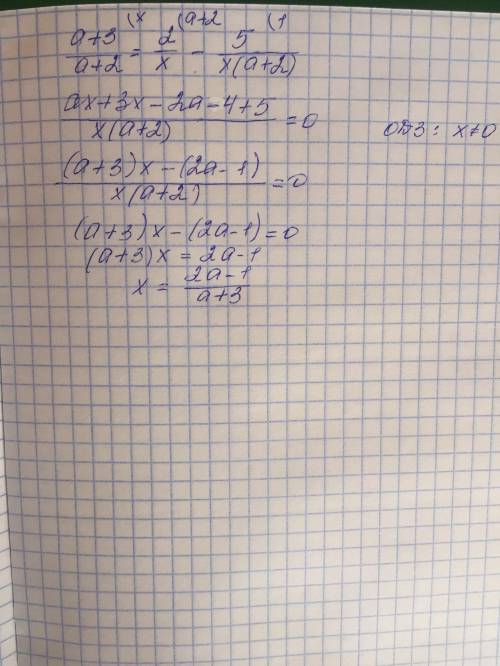 (a+3)/(a+2) (x = 2/x (a+2 - 5/(x(a+2)) (1
(ax+3x-2a-4+5)/(x(a+2)) = 0 ОДЗ: x≠0
((a+3)x-(2a-1))/(x(a+2)) = 0
(a+3)x-(2a-1)=0
(a+3)x = 2a-1
x = (2a-1)/(a+3)